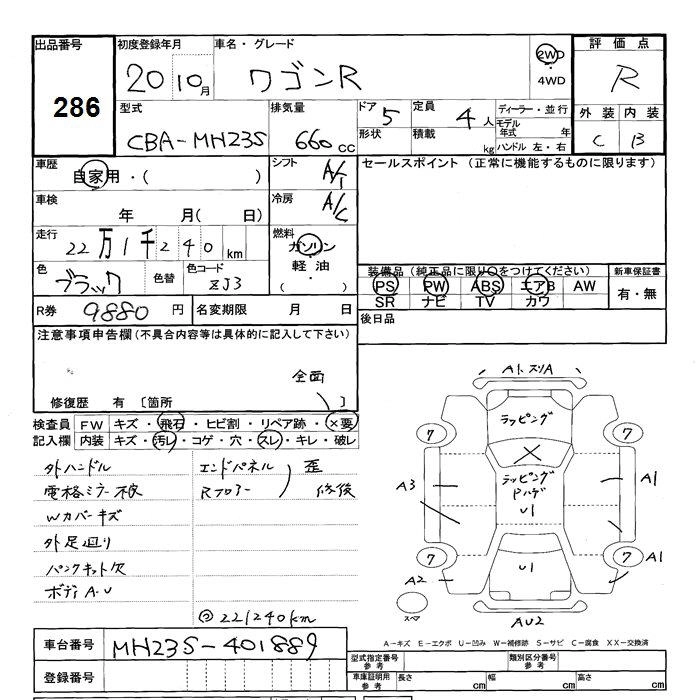 出品番号 初度登録年月 車名・グレード 2WD 評価点
286 20 10月 ワゴンR ・ 4WD R
型式 排気量 ドア 5 定員 4人 ディーラー・並行 外装 内装
CBA-MH23S 660cc 形状 積載 kg モデル年式 年 C B
ハンドル 左・右
車歴 自家用・( ) シフト A/T セールスポイント (正常に機能するものに限ります)
車検 年 月( 日) 冷房 A/C
走行 22万1千240km 燃料 ガソリン
軽油
・
( )
色 ブラック 色替 色コード ZJ3 装備品(純正品に限り○をつけてください) 新車保証書
PS PW ABS エアB AW 有・無
SR ナビ TV カワ
R券 9880円 名変期限 月 日 後日品
注意事項申告欄(不具合内容等は具体的に記入して下さい)
全面
修復歴 有 〔箇所 〕
検査員 FW キズ・飛石・ヒビ割・リペア跡・×要
記入欄 内装 キズ・汚レ・コゲ・穴・スレ・キレ・破レ
外ハンドル エンドパネル 歪
電格ミラー不良 Rフロアー 修後
Wカバーキズ
外足廻り
パンクキット欠
ボディA.U
221240km
A1.スリA
ラッピング
7 7
X
ラッピング
Pハゲ
A3 U1 A1
7 7 A1
A2 U1
スペア AU2
A-キズ E-エクボ U-凹み W-補修跡 S-サビ C-腐食 XX-交換済
車台番号 MH23S-401889 型式指定番号 参考 類別区分番号 参考
登録番号 車庫証明用 参考 長さ cm 幅 cm 高さ cm